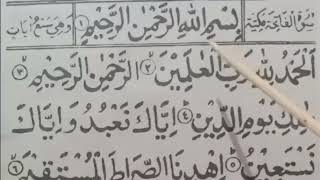 سُوْرَةُ الْفَاتِحَةِ مَكِّيَّةٌ
بِسْمِ اللّٰهِ الرَّحْمٰنِ الرَّحِيْمِ ۝١
وَهِيَ سَبْعُ اٰيَاتٍ
اَلْحَمْدُ لِلّٰهِ رَبِّ الْعٰلَمِيْنَ ۝٢ الرَّحْمٰنِ الرَّحِيْمِ ۝٣
مٰلِكِ يَوْمِ الدِّيْنِ ۝٤ اِيَّاكَ نَعْبُدُ وَاِيَّاكَ
نَسْتَعِيْنُ ۝٥ اِهْدِنَا الصِّرَاطَ الْمُسْتَقِيْمَ ۝٦